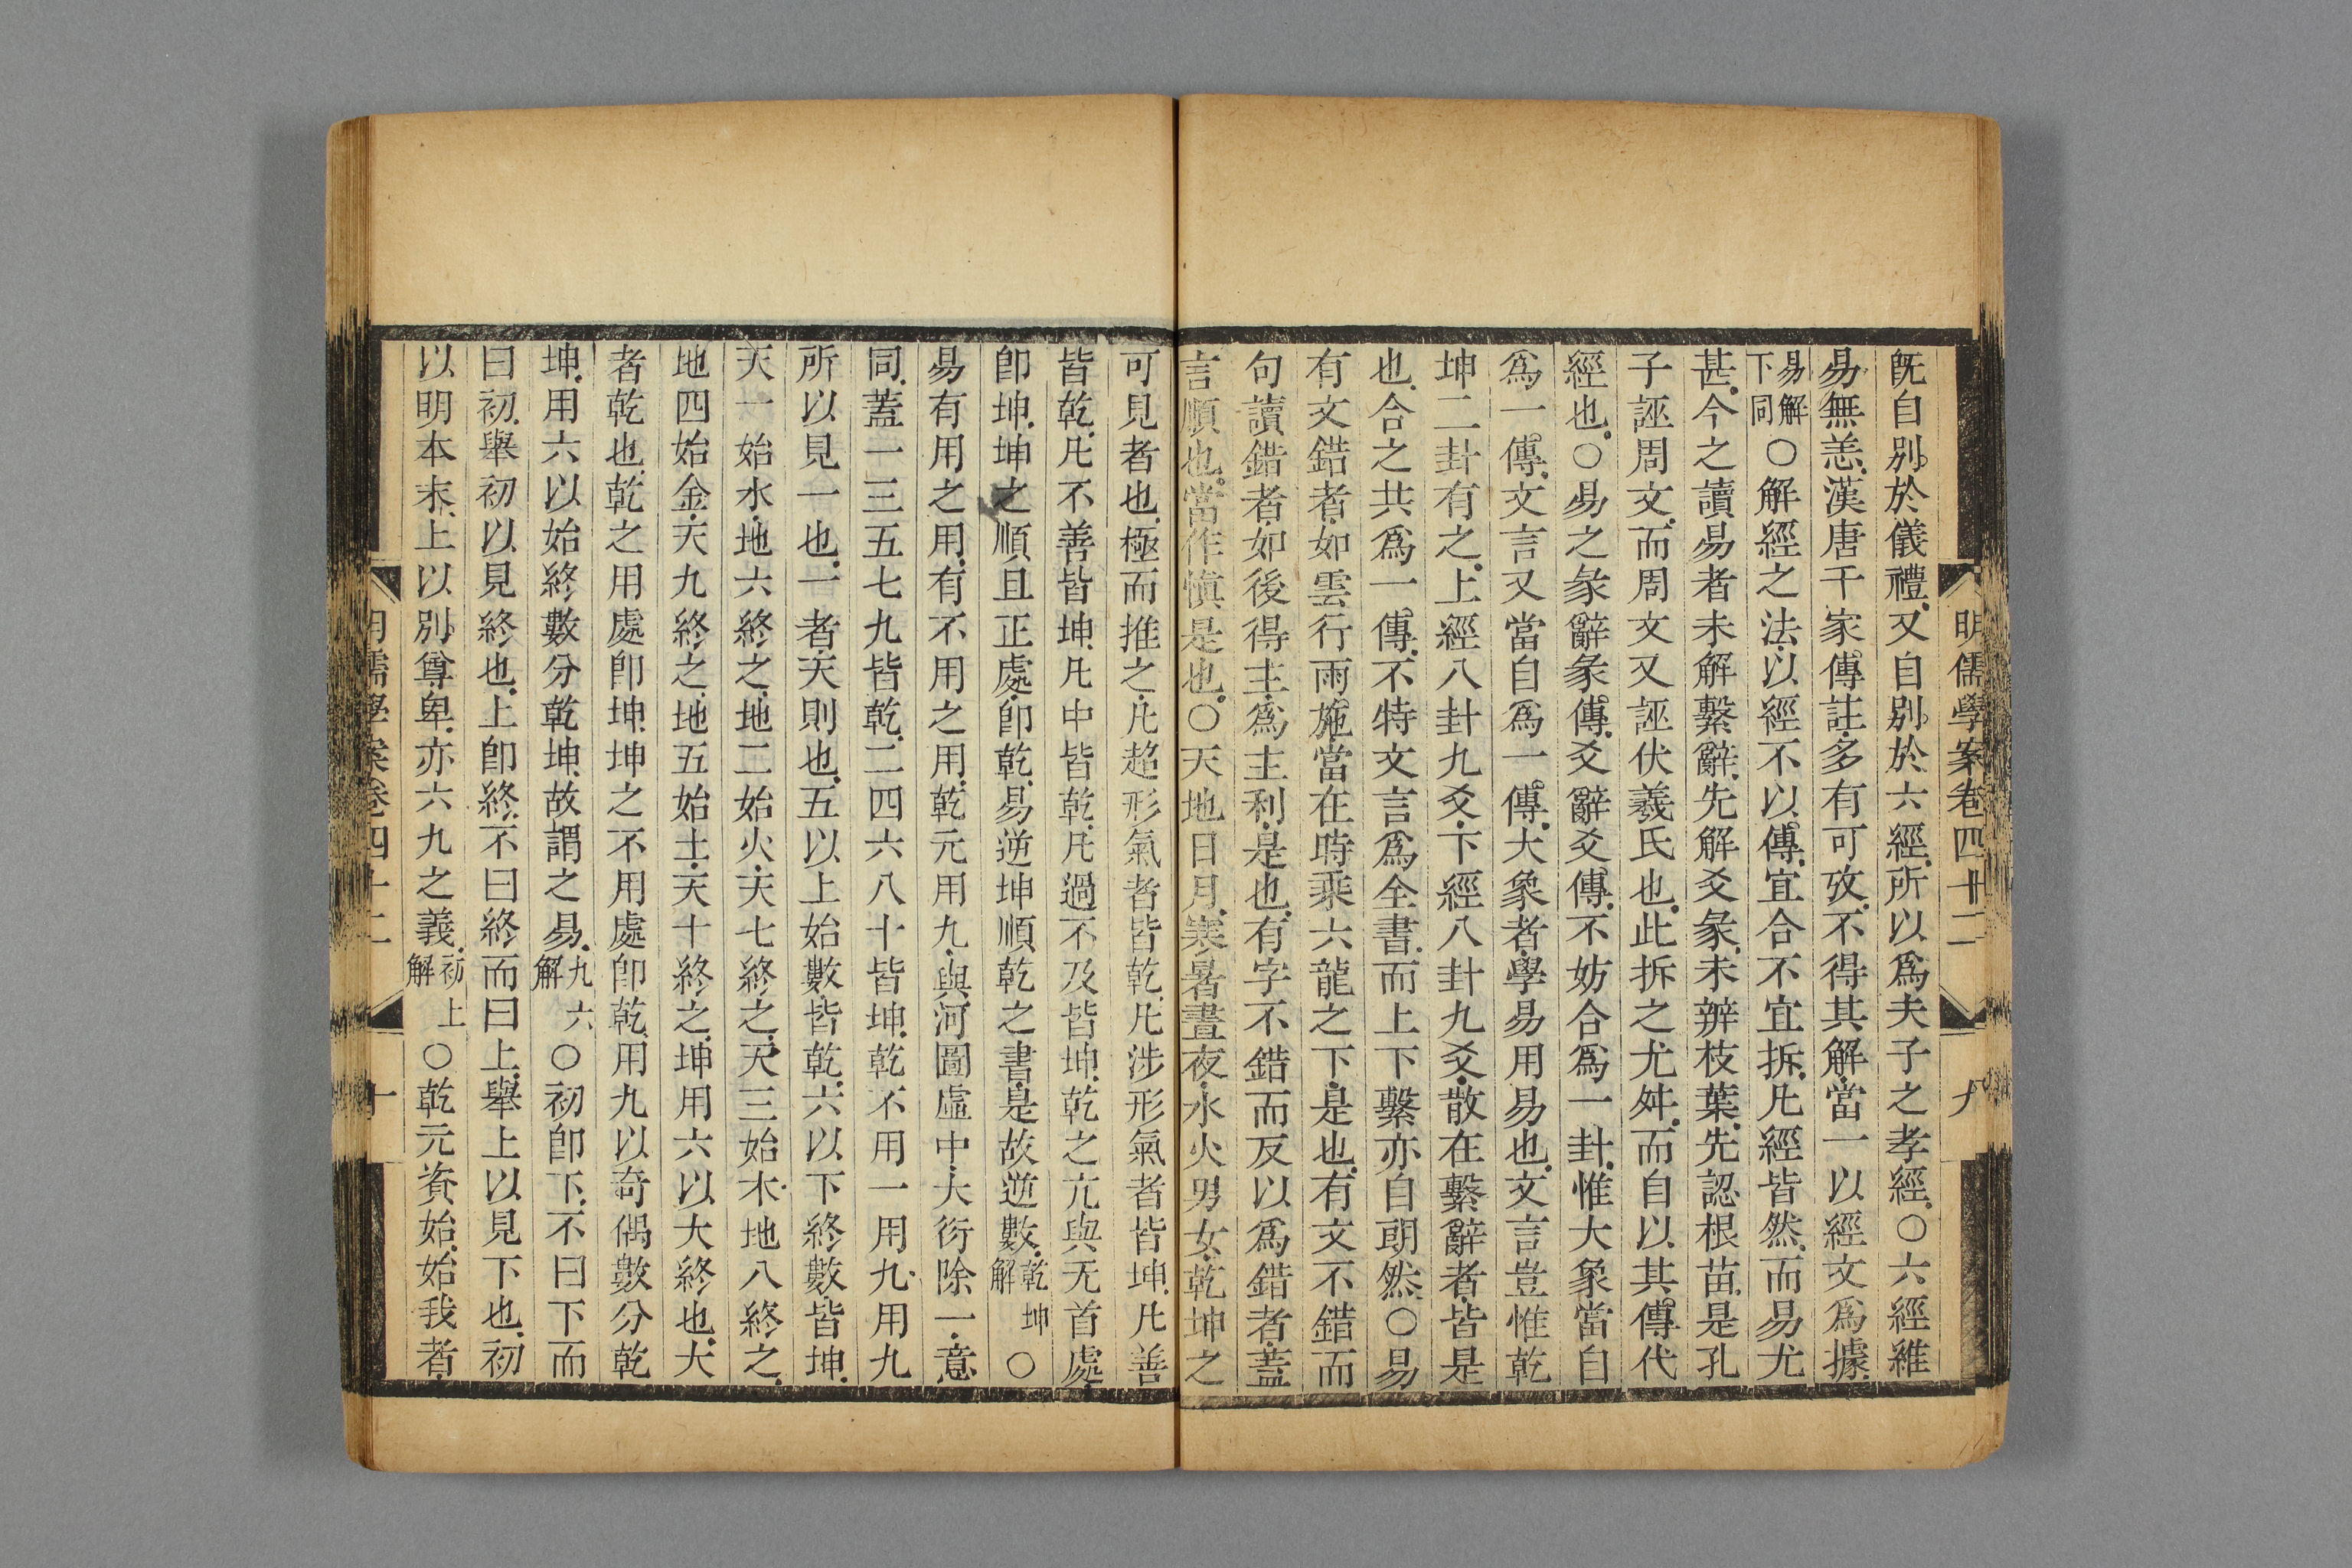 明儒學案卷四十二
九
旣自别於儀禮.又自别於六經.所以爲夫子之孝經.○六經維
易無恙.漢唐千家傳註.多有可攷.不得其解.當一以經文爲據.
易解下同○解經之法.以經不以傳.宜合不宜拆.凡經皆然.而易尤
甚.今之讀易者.未解繫辭.先解爻彖.未辨枝葉.先認根苗.是孔
子誣周文.而周文又誣伏羲氏也.此拆之尤舛.而自以其傳代
經也.○易之彖辭彖傳.爻辭爻傳.不妨合爲一卦.惟大象當自
爲一傳.文言又當自爲一傳.大象者.學易用易也.文言豈惟乾
坤二卦有之.上經八卦九爻.下經八卦九爻.散在繫辭者.皆是
也.合之共爲一傳.不特文言爲全書.而上下繫亦自朗然.○易
有文錯者.如雲行雨施.當在時乘六龍之下.是也.有文不錯而
句讀錯者.如後得主.爲主利.是也.有字不錯而反以爲錯者.蓋
言順也.當作愼是也.○天地日月.寒暑晝夜.水火男女.乾坤之
可見者也.極而推之.凡超形氣者皆乾.凡涉形氣者皆坤.凡善
皆乾.凡不善皆坤.凡中皆乾.凡過不及皆坤.乾之亢與无首處.
卽坤.坤之順且正處.卽乾.易逆坤順乾之書.是故逆數.乾坤解○
易有用之用.有不用之用.乾元用九.與河圖虛中.大衍除一.意
同.蓋一三五七九皆乾.二四六八十皆坤.乾不用一用九.用九
所以見一也.一者天則也.五以上始數.皆乾.六以下終數.皆坤.
天一始水.地六終之.地二始火.天七終之.天三始木.地八終之.
地四始金.天九終之.地五始土.天十終之.坤用六以大終也.大
者乾也.乾之用處卽坤.坤之不用處卽乾.用九以奇偶數分乾
坤.用六以始終數分乾坤.故謂之易.九六解○初卽下.不曰下而
曰初.舉初以見終也.上卽終.不曰終而曰上.舉上以見下也.初
以明本末.上以别尊卑.亦六九之義.初上解○乾元資始.始我者.
明儒學案卷四十二
十